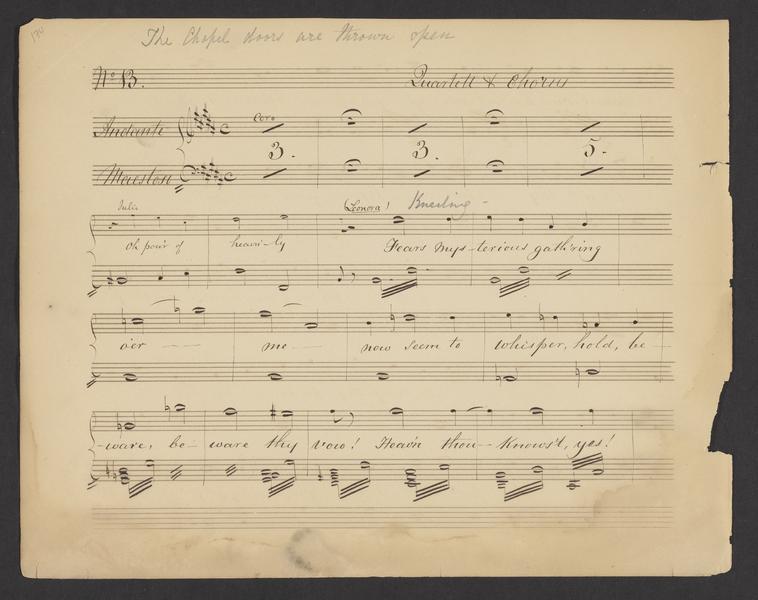 The Chapel doors are thrown open
No 13. Quartett & Chorus
Andante
Coro
3. 3. 5.
Maestoso
Julia (Leonora) Kneeling -
Oh pow'r of heaven-ly Fears mys-terious gath'ring
o'er me now seem to whisper, hold, be-
-ware, be-ware thy vow! Heav'n thou--know'st, yes!